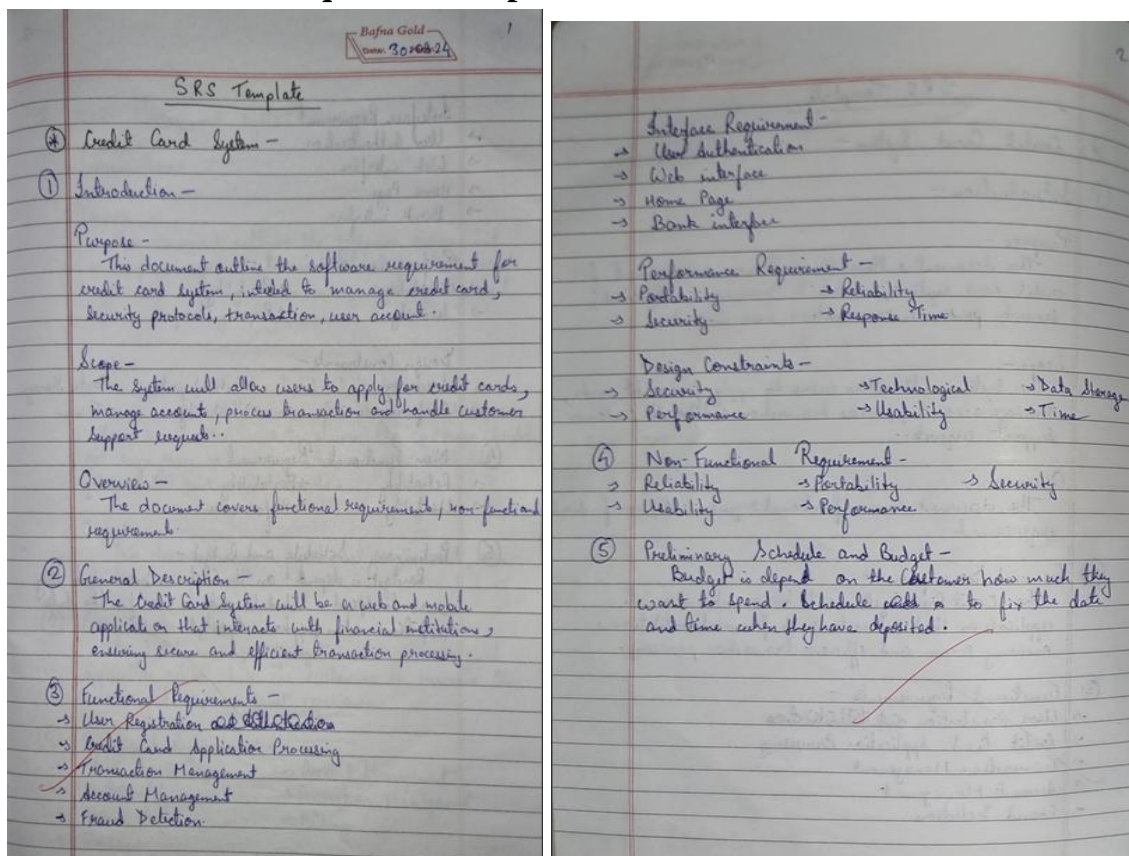 Bafna Gold
Date: 30 24
1
SRS Template
* Credit Card System -
① Introduction -
Purpose -
This document outline the software requirement for
credit card system, inteded to manage credit card,
security protocols, transaction, user account.
Scope -
The system will allow users to apply for credit cards,
manage accounts, process transaction and handle customer
support requests..
Overview -
The document covers functional requirements, non-functional
requirements.
② General Description -
The Credit Card System will be a web and mobile
application that interacts with financial institutions,
ensuring secure and efficient transaction processing.
③ Functional Requirements -
→ User Registration
→ Credit Card Application Processing
→ Transaction Management
→ Account Management
→ Fraud Detection.
2
Interface Requirement -
→ User Authentication
→ Web interface
→ Home Page
→ Bank interface
Performance Requirement -
→ Portability → Reliability
→ Security → Response Time
Design Constraints -
→ Security → Technological → Data Storage
→ Performance → Usability → Time
④ Non-Functional Requirement -
→ Reliability → Portability → Security
→ Usability → Performance
⑤ Preliminary Schedule and Budget -
Budget is depend on the Customer how much they
want to spend. Schedule is to fix the date
and time when they have deposited.